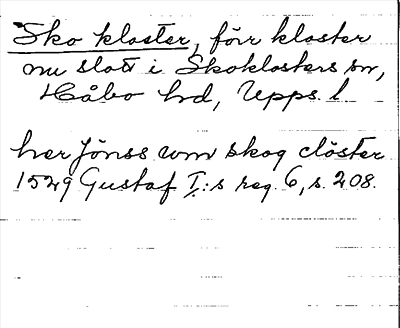 Sko kloster, förr kloster
nu slott i Skoklosters sn,
Håbo hd, Upps. l.
her Jönss vvm skog clöster
1529 Gustaf I:s reg. 6, s. 208.